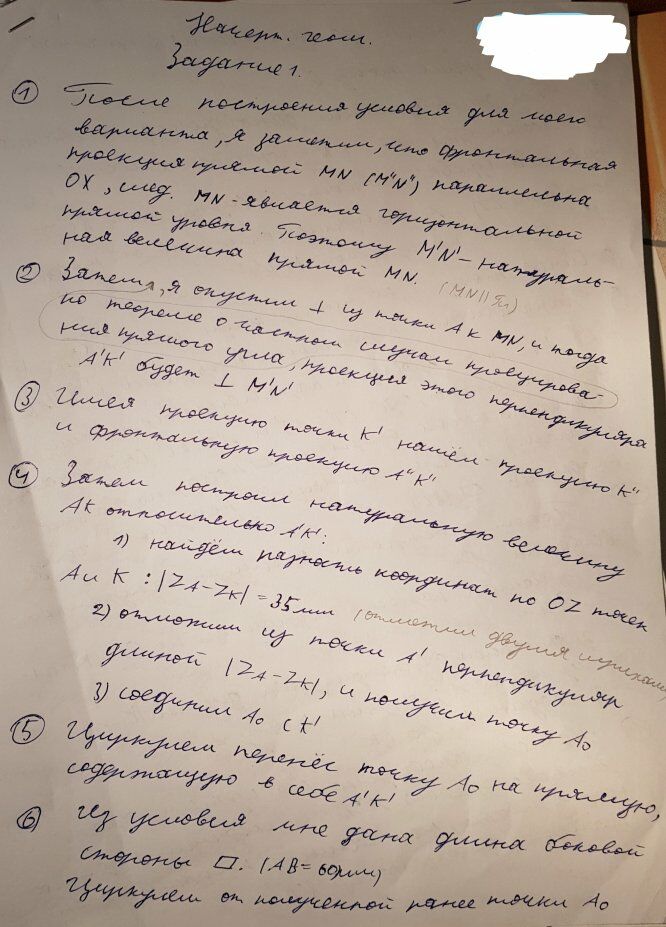 Начерт. геом.
Задание 1.
① После построения условия для моего
варианта, я заметил, что фронтальная
проекция прямой MN (M"N") параллельна
OX, след. MN - является горизонтальной
прямой уровня. Поэтому M'N' - натураль-
ная величина прямой MN. (MN || П₁)
② Затем, я опустил ⊥ из точки A к MN, и тогда
по теореме о частном случаи проецирова-
ния прямого угла, проекция этого перпендикуляра
A'K' будет ⊥ M'N'
③ Имея проекцию точки K' нашёл проекцию K"
и фронтальную проекцию A"K"
④ Затем построил натуральную величину
AK относительно A'K':
1) найдём разность координат по OZ точек
A и K : |ZA-ZK| = 35 мм (отметил двумя штрихами
2) отложим из точки A' перпендикуляр
длиной |ZA-ZK|, и получим точку A₀
3) соединил A₀ с K'
⑤ Циркулем перенёс точку A₀ на прямую,
содержащую в себе A'K'
⑥ Из условия мне дана длина боковой
стороны □. (AB = 60мм)
Циркулем от полученной ранее точки A₀